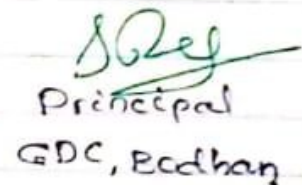 Principal
GDC, Bodhan